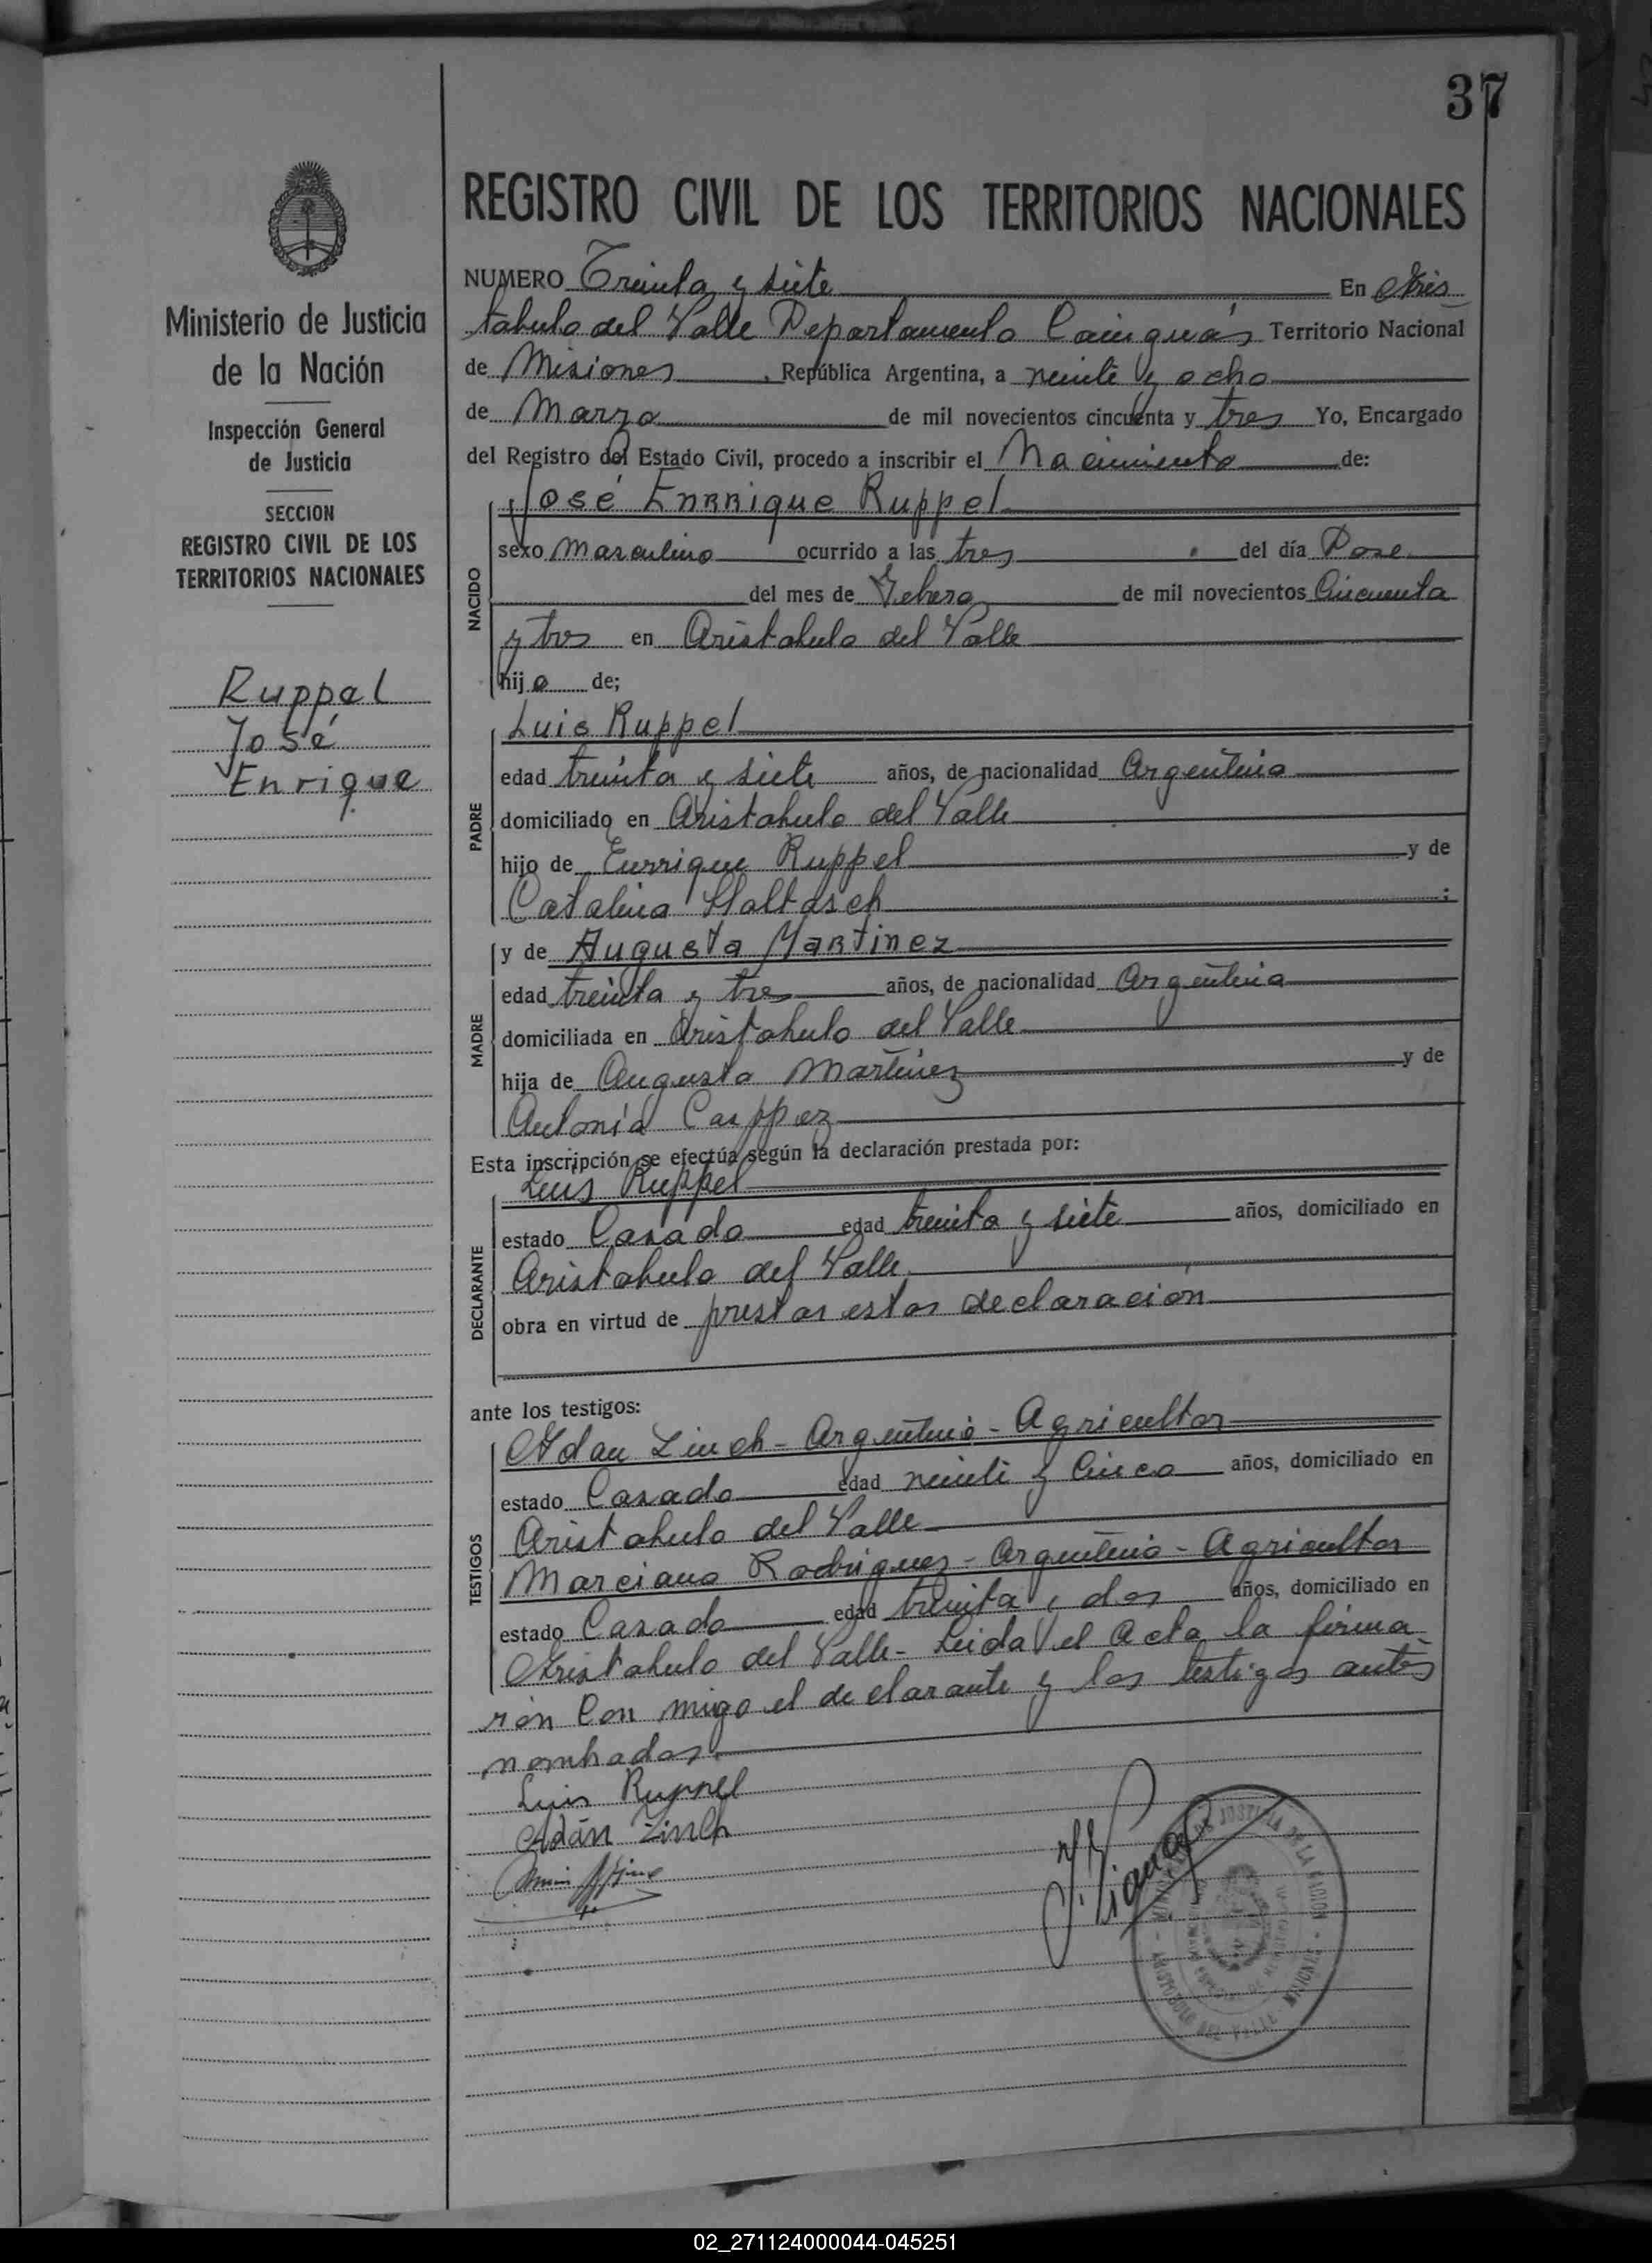 37
REGISTRO CIVIL DE LOS TERRITORIOS NACIONALES
Ministerio de Justicia
de la Nación
Inspección General
de Justicia
SECCION
REGISTRO CIVIL DE LOS
TERRITORIOS NACIONALES
Ruppel
José
Enrique
NUMERO Treinta y siete En Aris
tabulo del Valle Departamento Cainguás Territorio Nacional
de Misiones, República Argentina, a veinte y ocho
de Marzo de mil novecientos cincuenta y tres Yo, Encargado
del Registro del Estado Civil, procedo a inscribir el Nacimiento de:
NACIDO
José Enrrique Ruppel
sexo Masculino ocurrido a las tres del día Dose
del mes de Febero de mil novecientos Cincuenta
y tres en Aristabulo del Valle
hijo de;
PADRE
Luis Ruppel
edad treinta y siete años, de nacionalidad Argentino
domiciliado en Aristabulo del Valle
hijo de Enrrique Ruppel y de
Catalina ;
MADRE
y de Augusta Martinez
edad treinta y tres años, de nacionalidad Argentina
domiciliada en Aristabulo del Valle
hija de Augusto Martinez y de
Antonia
Esta inscripción se efectúa según la declaración prestada por:
DECLARANTE
Luis Ruppel
estado Casado edad treinta y siete años, domiciliado en
Aristabulo del Valle
obra en virtud de prestar estar declaración
ante los testigos:
TESTIGOS
Adan Zinch - Argentino - Agricultor
estado Casado edad veinte y Cinco años, domiciliado en
Aristabulo del Valle
Marciano Rodriguez - Argentino - Agricultor
estado Casado edad treinta y dos años, domiciliado en
Aristabulo del Valle - Leida el Acta la firma
ron Con migo el declarante y los testigos antes
nombados.
Luis Ruppel
Adán Zinch
02_271124000044-045251